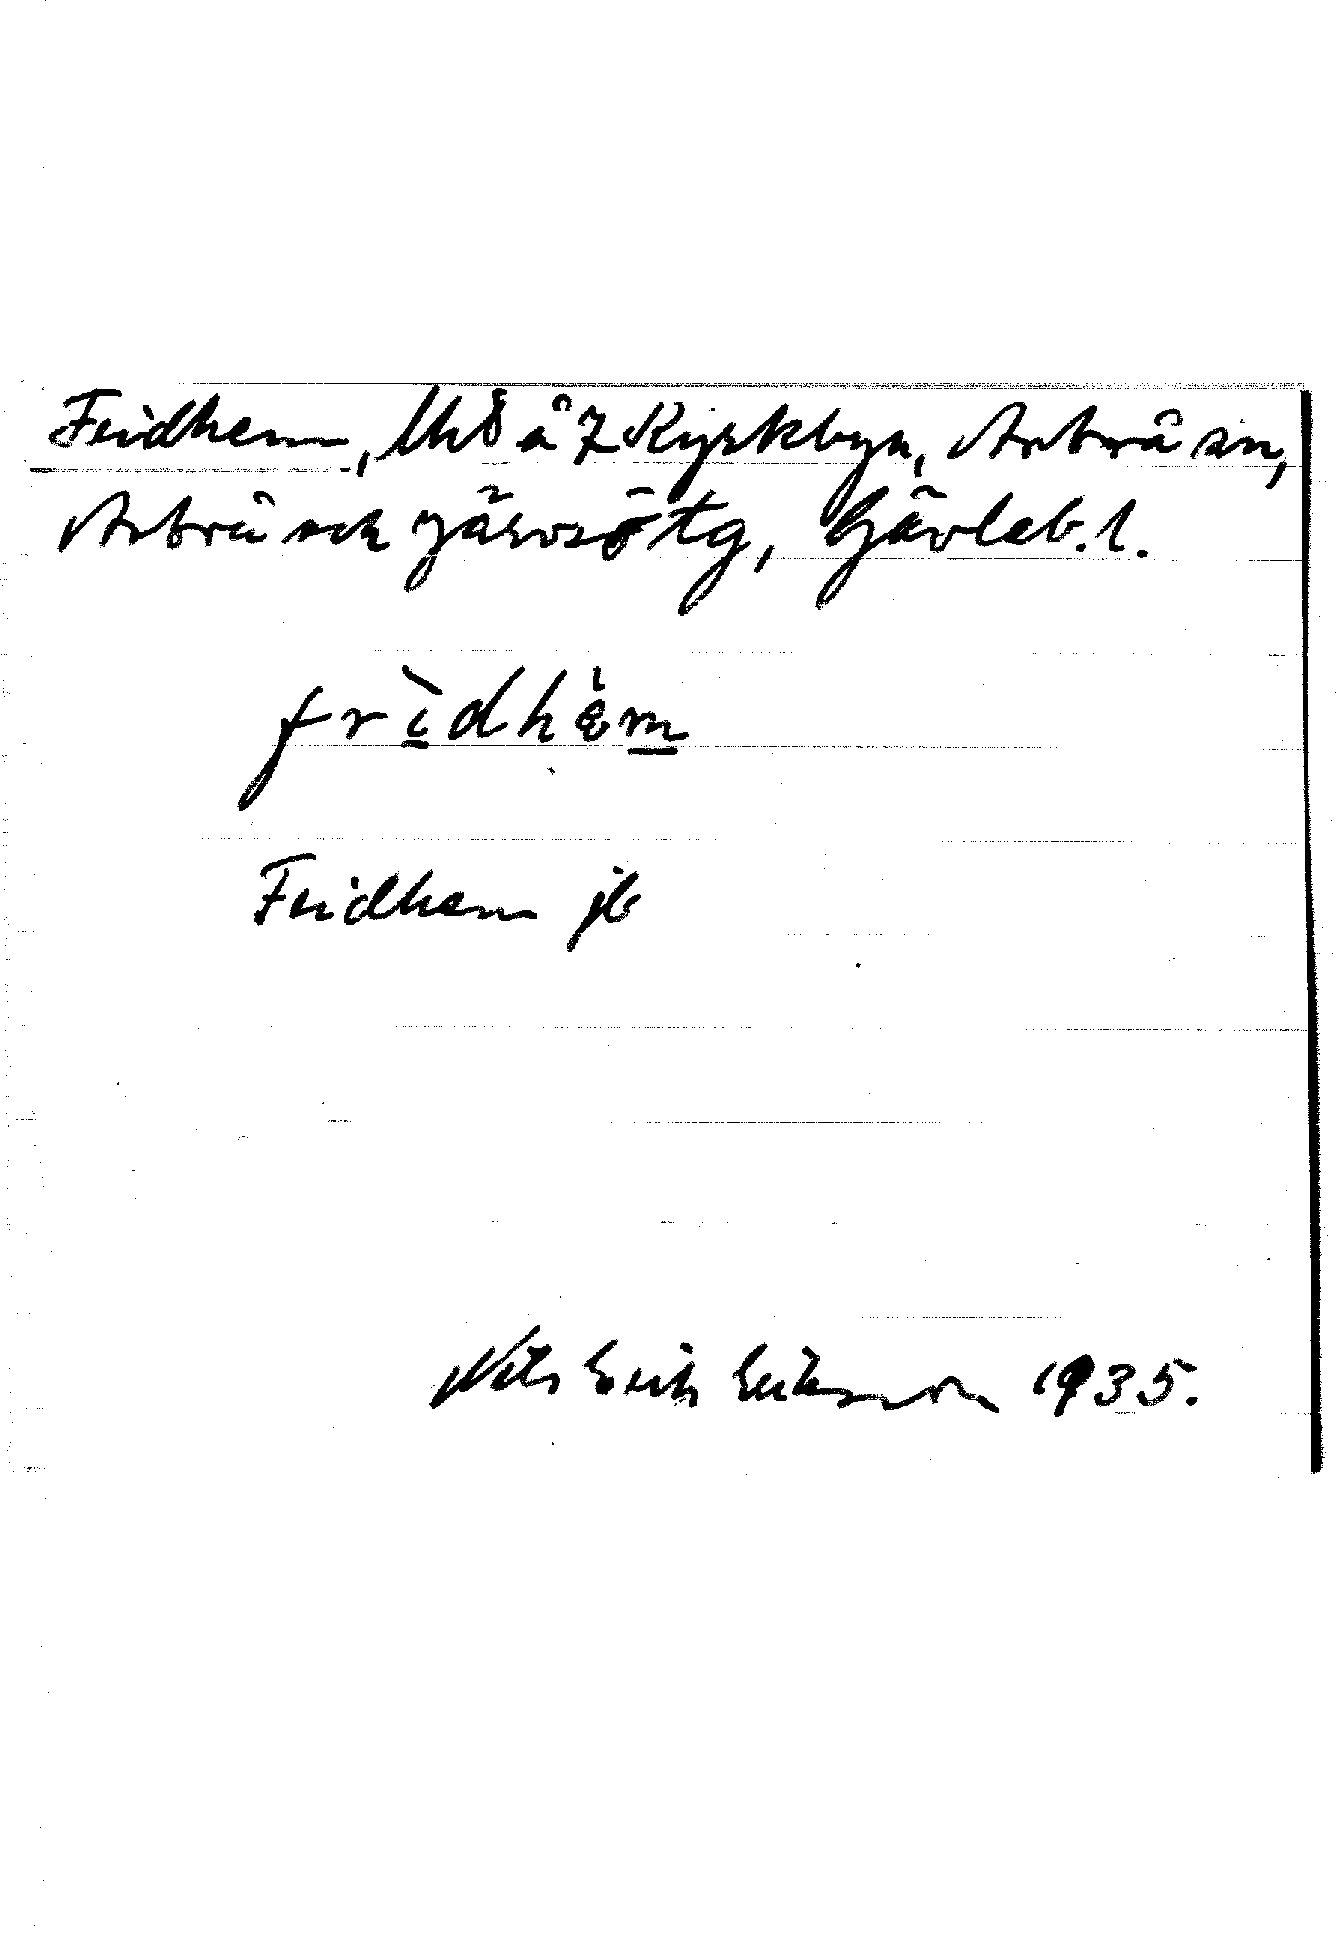 Fridhem, lht å 7 Kyrkbyn, Arbrå sn,
Arbrå och Järvsö tg, Gävleb. l.
frìdhèm
Fridhem jb
Nils Erik Eriksson 1935.